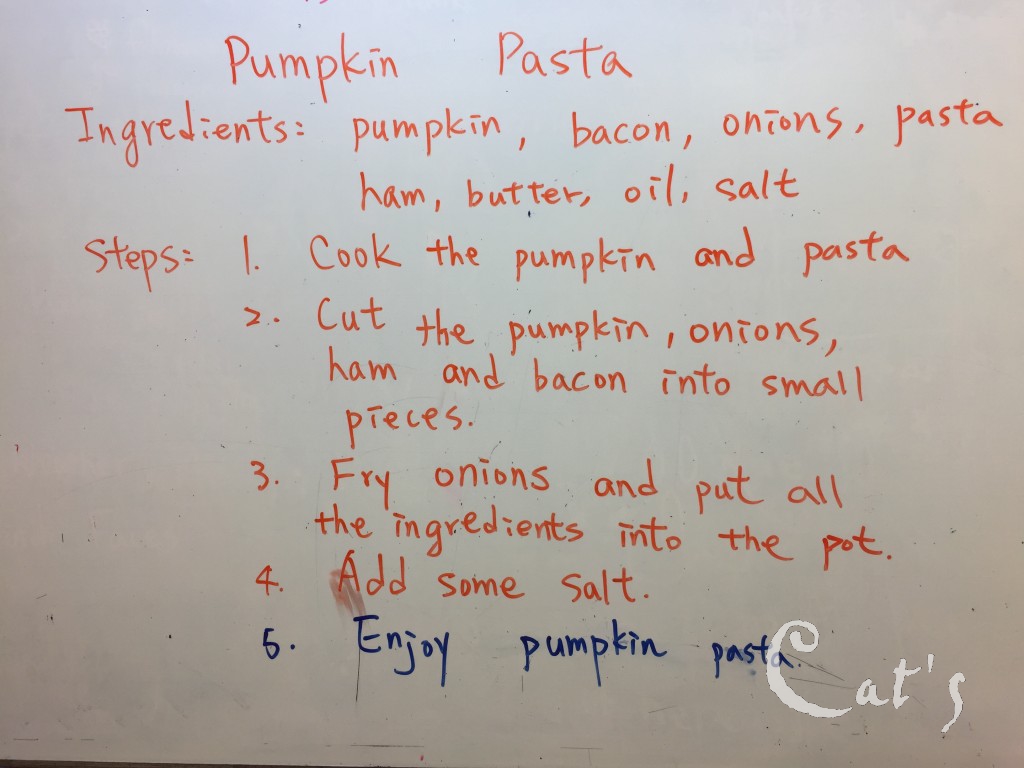 Pumpkin Pasta
Ingredients: pumpkin, bacon, onions, pasta
ham, butter, oil, salt
Steps: 1. Cook the pumpkin and pasta
2. Cut the pumpkin, onions,
ham and bacon into small
pieces.
3. Fry onions and put all
the ingredients into the pot.
4. Add some salt.
5. Enjoy pumpkin pasta.
Cat's